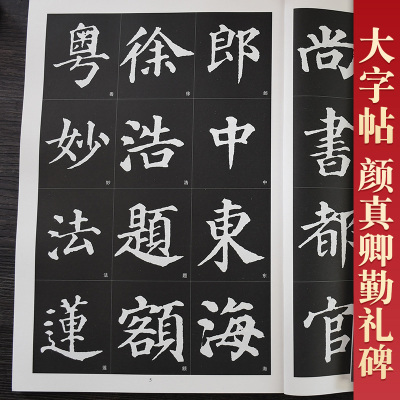 大字帖 颜真卿勤礼碑
尚書都官
郎中東海
徐浩題額
粤妙法蓮